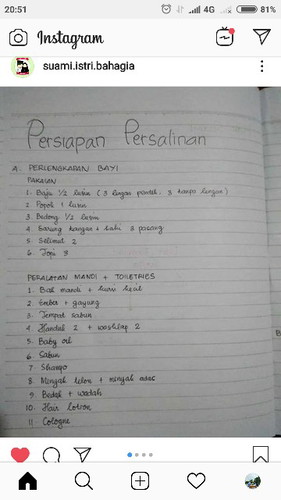 20:51
4G 81%
Instagram
suami.istri.bahagia
Persiapan Persalinan
A. PERLENGKAPAN BAYI
PAKAIAN
1. Baju 1/2 lusin (3 lengan pendek, 3 tanpa lengan)
2. Popok 1 lusin
3. Bedong 1/2 lusin
4. Sarung tangan + kaki 3 pasang
5. Selimut 2
6. Topi 3
PERALATAN MANDI + TOILETRIES
1. Bak mandi + kursi kecil
2. Ember + gayung
3. Tempat sabun
4. Handuk 2 + washlap 2
5. Baby oil
6. Sabun
7. Shampo
8. Minyak telon + minyak adas
9. Bedak + wadah
10. Hair lotion
11. Cologne
B